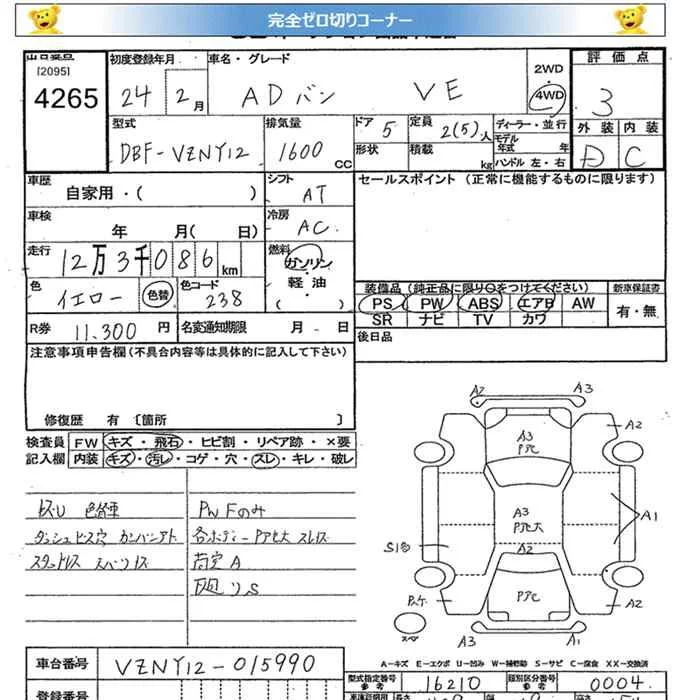 完全ゼロ切りコーナー
出品番号
[2095]
4265
初度登録年月
24 2月
車名・グレード
ADバン VE
2WD
4WD
評価点
3
外装 内装
D C
型式
DBF-VZNY12
排気量
1600 CC
ドア 5
形状
定員 2(5)人
積載 kg
ディーラー・並行
モデル年式 年
ハンドル 左・右
車歴
自家用・( )
シフト
AT
セールスポイント (正常に機能するものに限ります)
車検
年 月( 日)
冷房
AC
走行
12万3千086km
燃料
ガソリン
・
軽油
( )
色
イエロー 色替
色コード
238
装備品 (純正品に限り○をつけてください)
PS PW ABS エアB AW
SR ナビ TV カワ
新車保証書
有・無
R券 11.300 円
名変通知期限 月 日
後日品
注意事項申告欄(不具合内容等は具体的に記入して下さい)
修復歴 有 〔箇所 〕
検査員
記入欄
FW キズ・飛石・ヒビ割・リペア跡・×要
内装 キズ・汚レ・コゲ・穴・スレ・キレ・破レ
色替車
PWFのみ
荷室A
A2 A3
A2
A3
Pアセ
A3
Pアセ大
A1
A2
Pアセ
A2
A3 A1
A-キズ E-エクボ U-凹み W-補修跡 S-サビ C-腐食 XX-交換済
車台番号
VZNY12-015990
登録番号
型式指定番号
参考
16210
類別区分番号
参考
0004